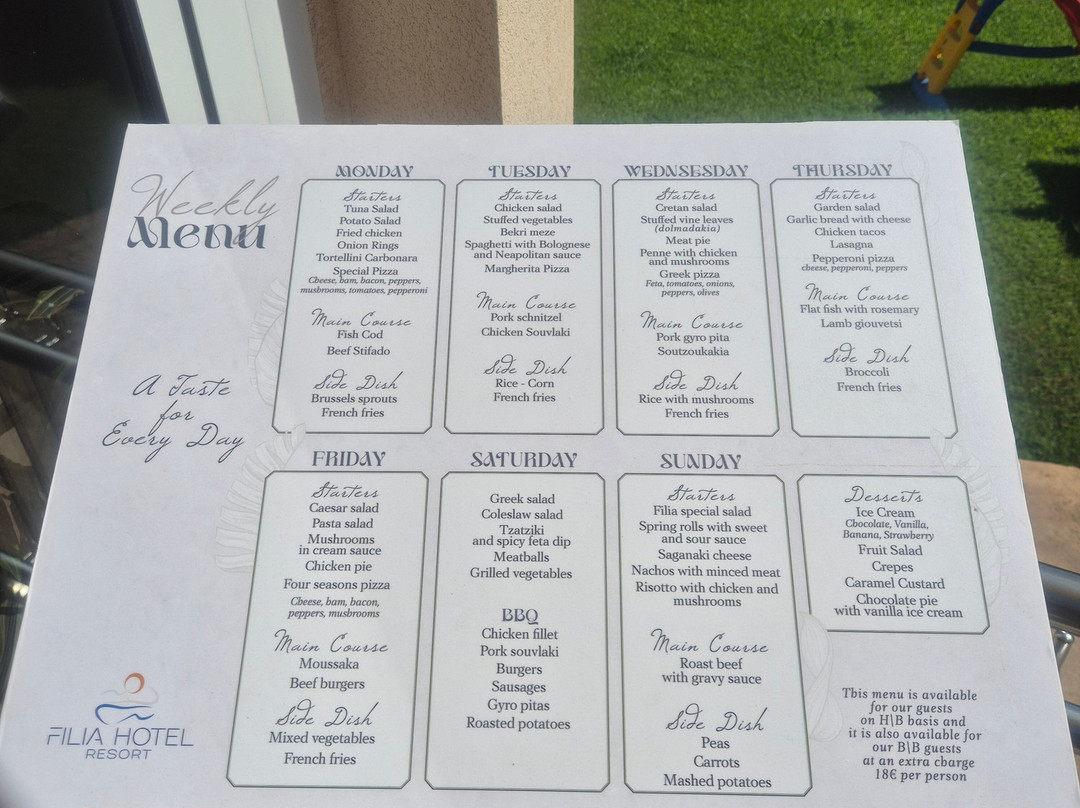 Weekly
Menu
A Taste
for
Every Day
MONDAY
Starters
Tuna Salad
Potato Salad
Fried chicken
Onion Rings
Tortellini Carbonara
Special Pizza
Cheese, bam, bacon, peppers,
mushrooms, tomatoes, pepperoni
Main Course
Fish Cod
Beef Stifado
Side Dish
Brussels sprouts
French fries
TUESDAY
Starters
Chicken salad
Stuffed vegetables
Bekri meze
Spaghetti with Bolognese
and Neapolitan sauce
Margherita Pizza
Main Course
Pork schnitzel
Chicken Souvlaki
Side Dish
Rice - Corn
French fries
WEDNSESDAY
Starters
Cretan salad
Stuffed vine leaves
(dolmadakia)
Meat pie
Penne with chicken
and mushrooms
Greek pizza
Feta, tomatoes, onions,
peppers, olives
Main Course
Pork gyro pita
Soutzoukakia
Side Dish
Rice with mushrooms
French fries
THURSDAY
Starters
Garden salad
Garlic bread with cheese
Chicken tacos
Lasagna
Pepperoni pizza
cheese, pepperoni, peppers
Main Course
Flat fish with rosemary
Lamb giouvetsi
Side Dish
Broccoli
French fries
FRIDAY
Starters
Caesar salad
Pasta salad
Mushrooms
in cream sauce
Chicken pie
Four seasons pizza
Cheese, bam, bacon,
peppers, mushrooms
Main Course
Moussaka
Beef burgers
Side Dish
Mixed vegetables
French fries
SATURDAY
Greek salad
Coleslaw salad
Tzatziki
and spicy feta dip
Meatballs
Grilled vegetables
BBQ
Chicken fillet
Pork souvlaki
Burgers
Sausages
Gyro pitas
Roasted potatoes
SUNDAY
Starters
Filia special salad
Spring rolls with sweet
and sour sauce
Saganaki cheese
Nachos with minced meat
Risotto with chicken and
mushrooms
Main Course
Roast beef
with gravy sauce
Side Dish
Peas
Carrots
Mashed potatoes
Desserts
Ice Cream
Chocolate, Vanilla,
Banana, Strawberry
Fruit Salad
Crepes
Caramel Custard
Chocolate pie
with vanilla ice cream
This menu is available
for our guests
on H\B basis and
it is also available for
our B\B guests
at an extra charge
18€ per person
FILIA HOTEL
RESORT